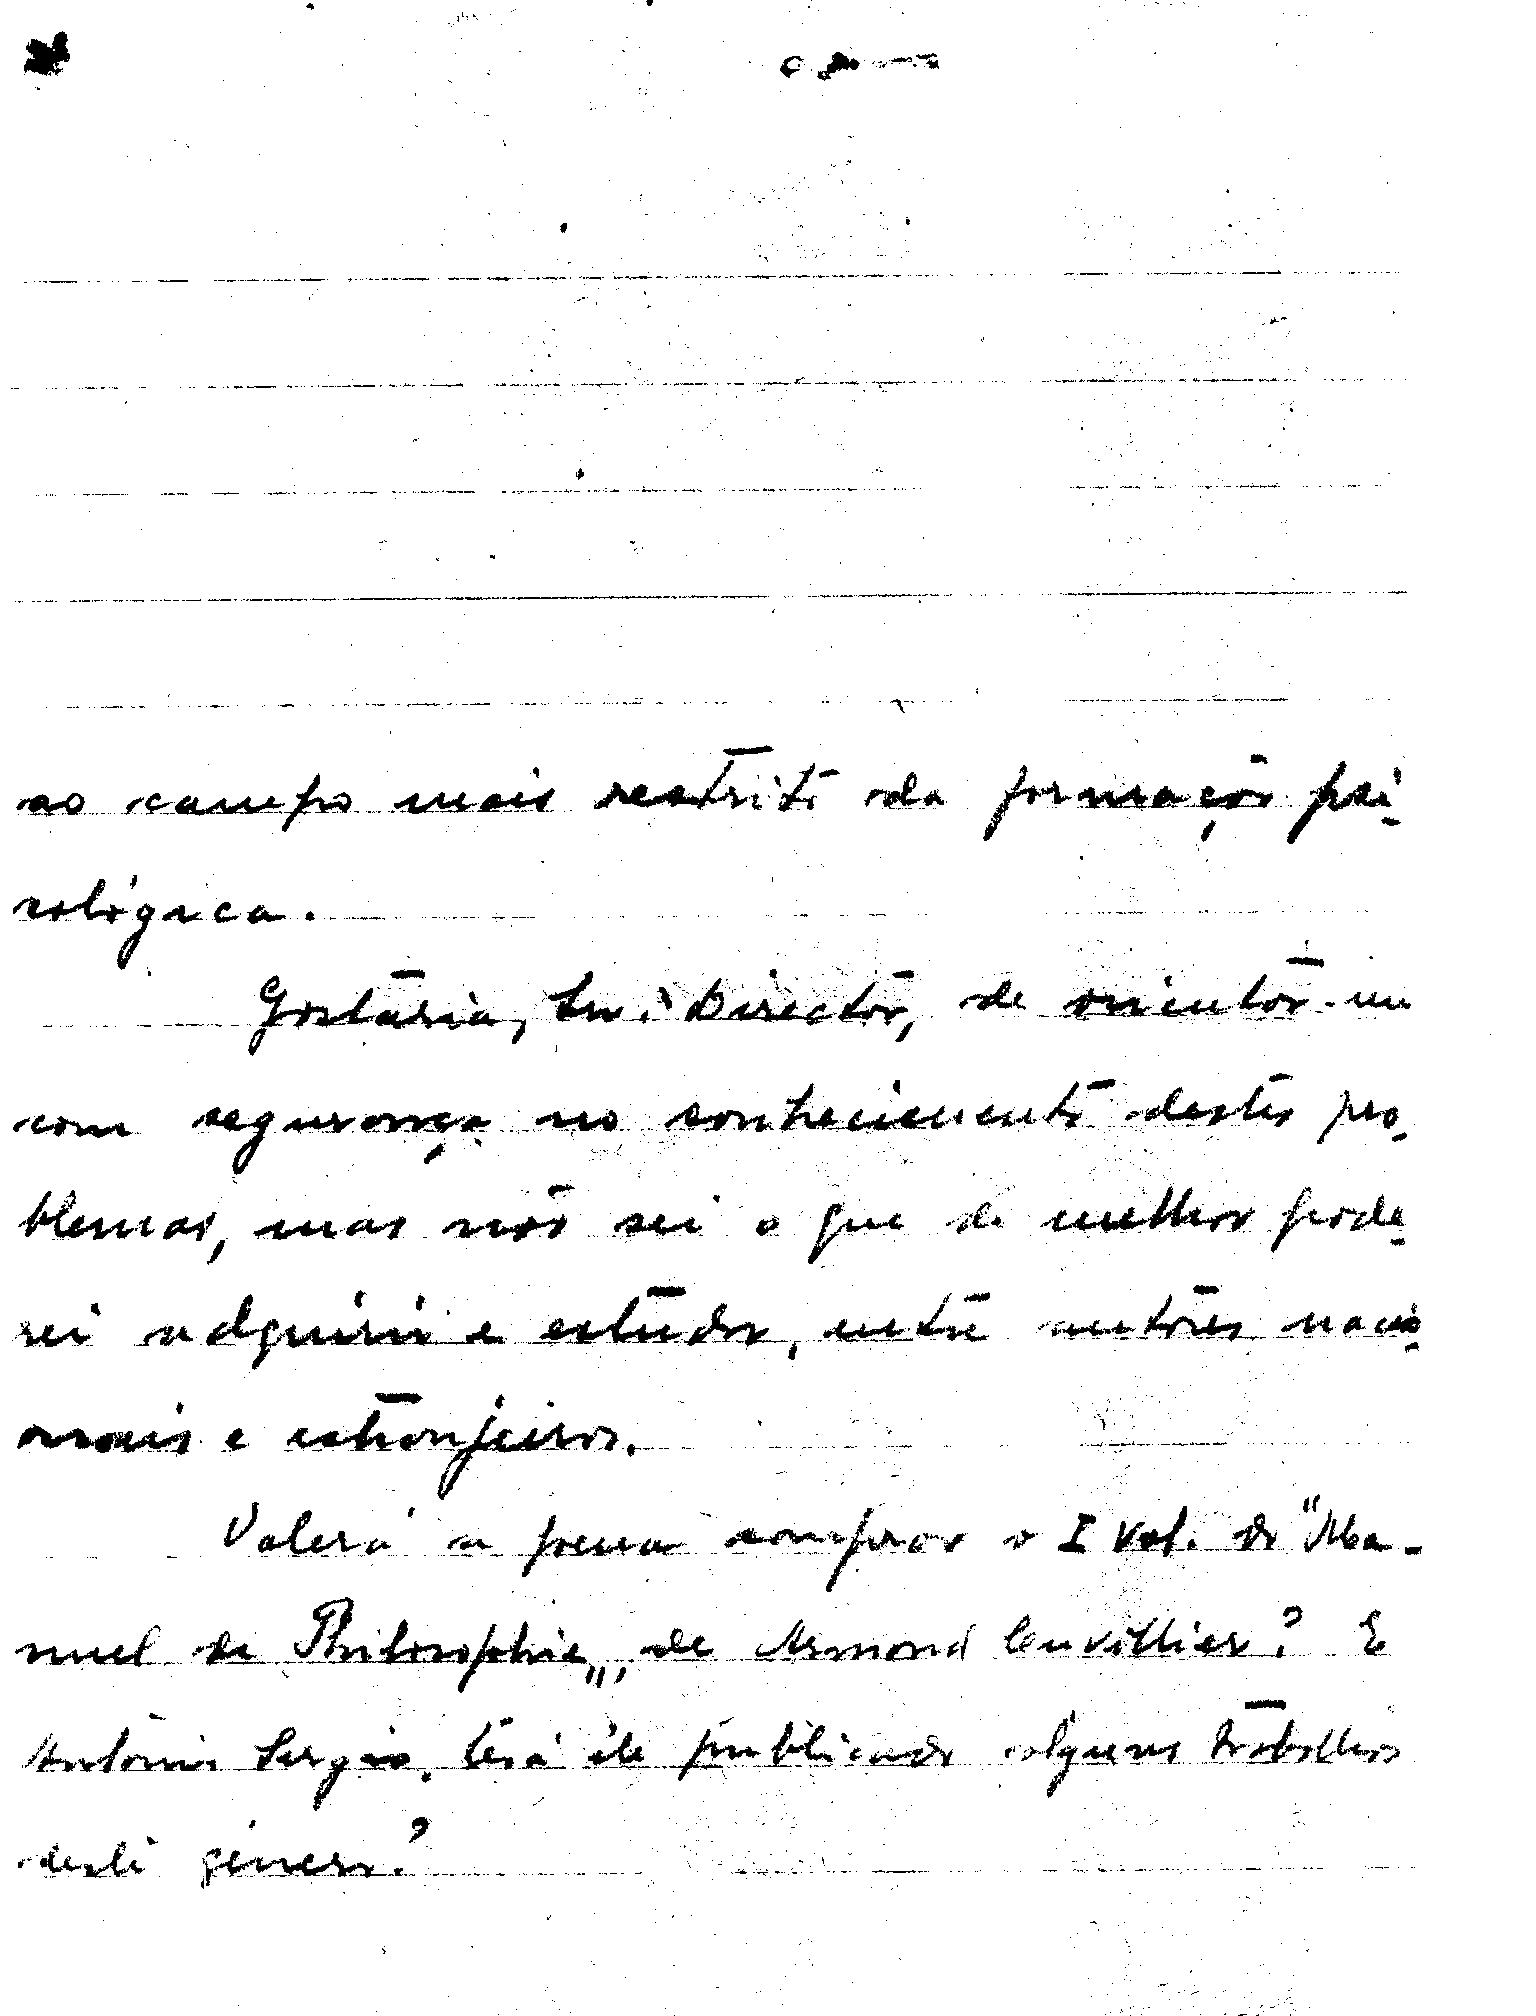 ao campo mais restrito da formação psi-
cológica.
Gostaria, Sr. Director, de orientar-me
com segurança no conhecimento destes pro-
blemas, mas não sei o que de melhor pode-
rei adquirir e estudar, entre autores naci-
onais e estranjeiros.
Valerá a pena comprar o I Vol. do "Ma-
nuel de Philosophie", de Armand Cuvillier? E
António Sergio, terá êle publicado alguns trabalhos
deste género?